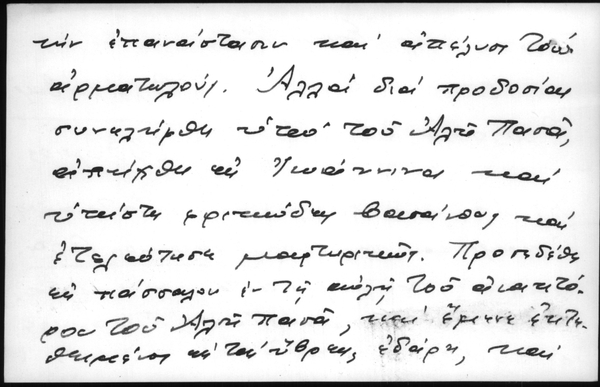 τήν ἐπανάστασιν καί ἀπέλυσε τούς
ἁρματωλούς. Ἀλλά διά προδοσίας
συνελήφθη ὑπό τοῦ Ἀλῆ Πασᾶ,
ἀπήχθη εἰς Ἰωάννινα καί
ὑπέστη φρικώδεις βασάνους καί
ἐτελεύτησε μαρτυρικῶς. Προσεδέθη
εἰς πάσσαλον ἐν τῇ αὐλῇ τοῦ ἀνακτό-
ρου τοῦ Ἀλῆ Πασᾶ, καί ἔμεινε ἐκτε-
θειμένος εἰς τάς ὕβρεις, ἐδάρη, καί